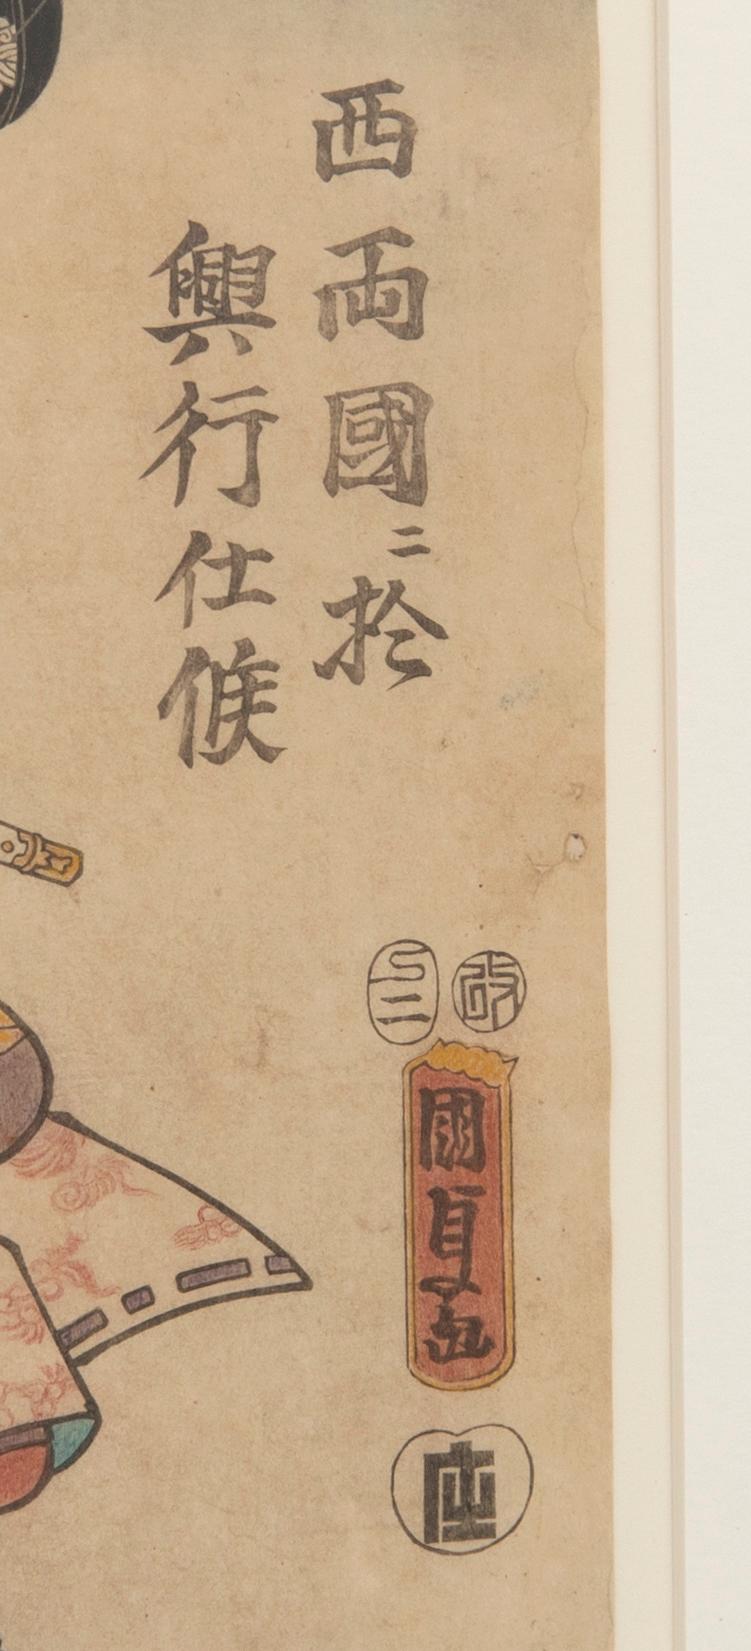 西両國ニ於
興行仕候
改
巳二
國貞画
庄